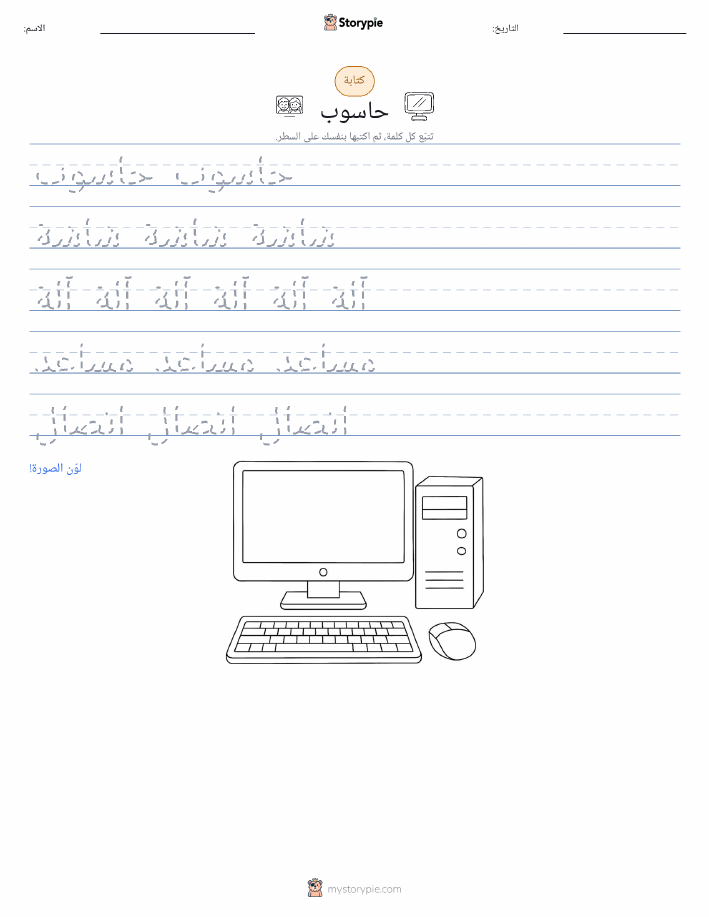 الاسم:
Storypie
التاريخ:
كتابة
حاسوب
تتبّع كل كلمة، ثم اكتبها بنفسك على السطر.
حاسوب حاسوب
شاشة شاشة شاشة
آلة آلة آلة آلة آلة آلة
مساعد مساعد مساعد
اتصال اتصال اتصال
لوّن الصورة!
mystorypie.com